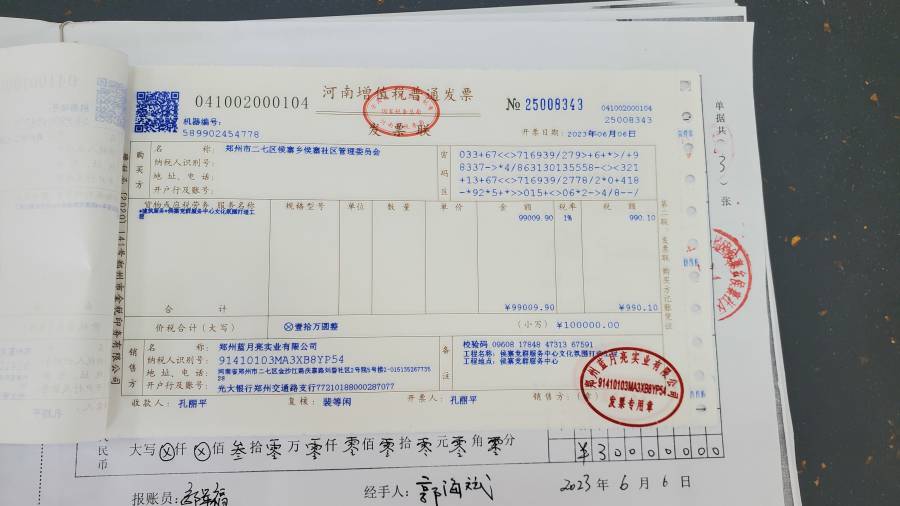 041002000104
河南增值税普通发票
发票联
№ 25008343
041002000104
25008343
机器编号:
589902454778
开票日期: 2023年06月06日
购买方
名 称: 郑州市二七区侯寨乡侯寨社区管理委员会
纳税人识别号:
地 址、电 话:
开户行及账号:
密码区
033+67<<>716939/279>+6+*>/+9
8337->*4/863130135558-<>>321
+13+67<<>716939/2778/2*0+418
-*92*5+*>>015+<>06*2->4/8--/
货物或应税劳务、服务名称 规格型号 单位 数量 单价 金额 税率 税额
*建筑服务*侯寨党群服务中心文化氛围打造工程 99009.90 1% 990.10
合 计 ¥99009.90 ¥990.10
价税合计(大写) ⊗壹拾万圆整 (小写) ¥100000.00
销售方
名 称: 郑州蓝月亮实业有限公司
纳税人识别号: 91410103MA3XB8YP54
地 址、电 话:
开户行及账号: 光大银行郑州交通路支行77210188000287077
备注
校验码 09608 17848 47313 67591
工程名称: 侯寨党群服务中心文化氛围打造工程
工程地点: 侯寨党群服务中心
收款人: 孔丽平 复核: 裴等闲 开票人: 孔丽平 销售方:(章)
郑州蓝月亮实业有限公司
91410103MA3XB8YP54
发票专用章
第二联:发票联 购买方记账凭证
单据共 3 张
人民币 大写 ⊗ 仟 ⊗ 佰 叁 拾 零 万 零 仟 零 佰 零 拾 零 元 零 角 零 分 ¥30000000
报账员:
经手人: 郭海斌
2023 年 6 月 6 日